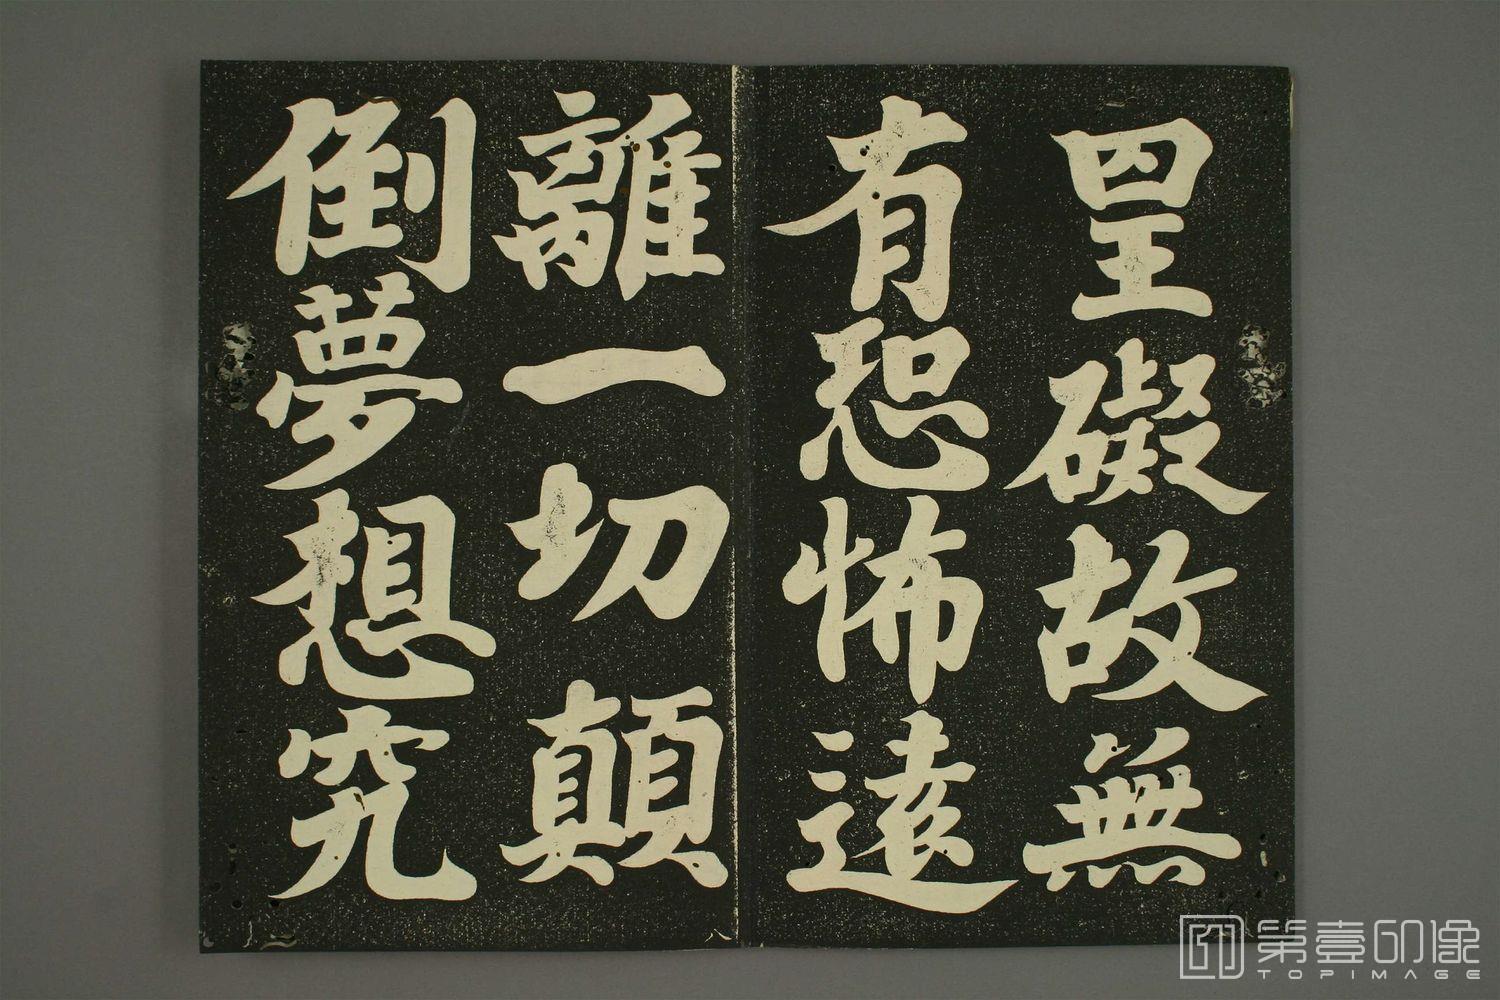 罣礙故無
有恐怖遠
離一切顛
倒夢想究
第壹印像
TOPIMAGE